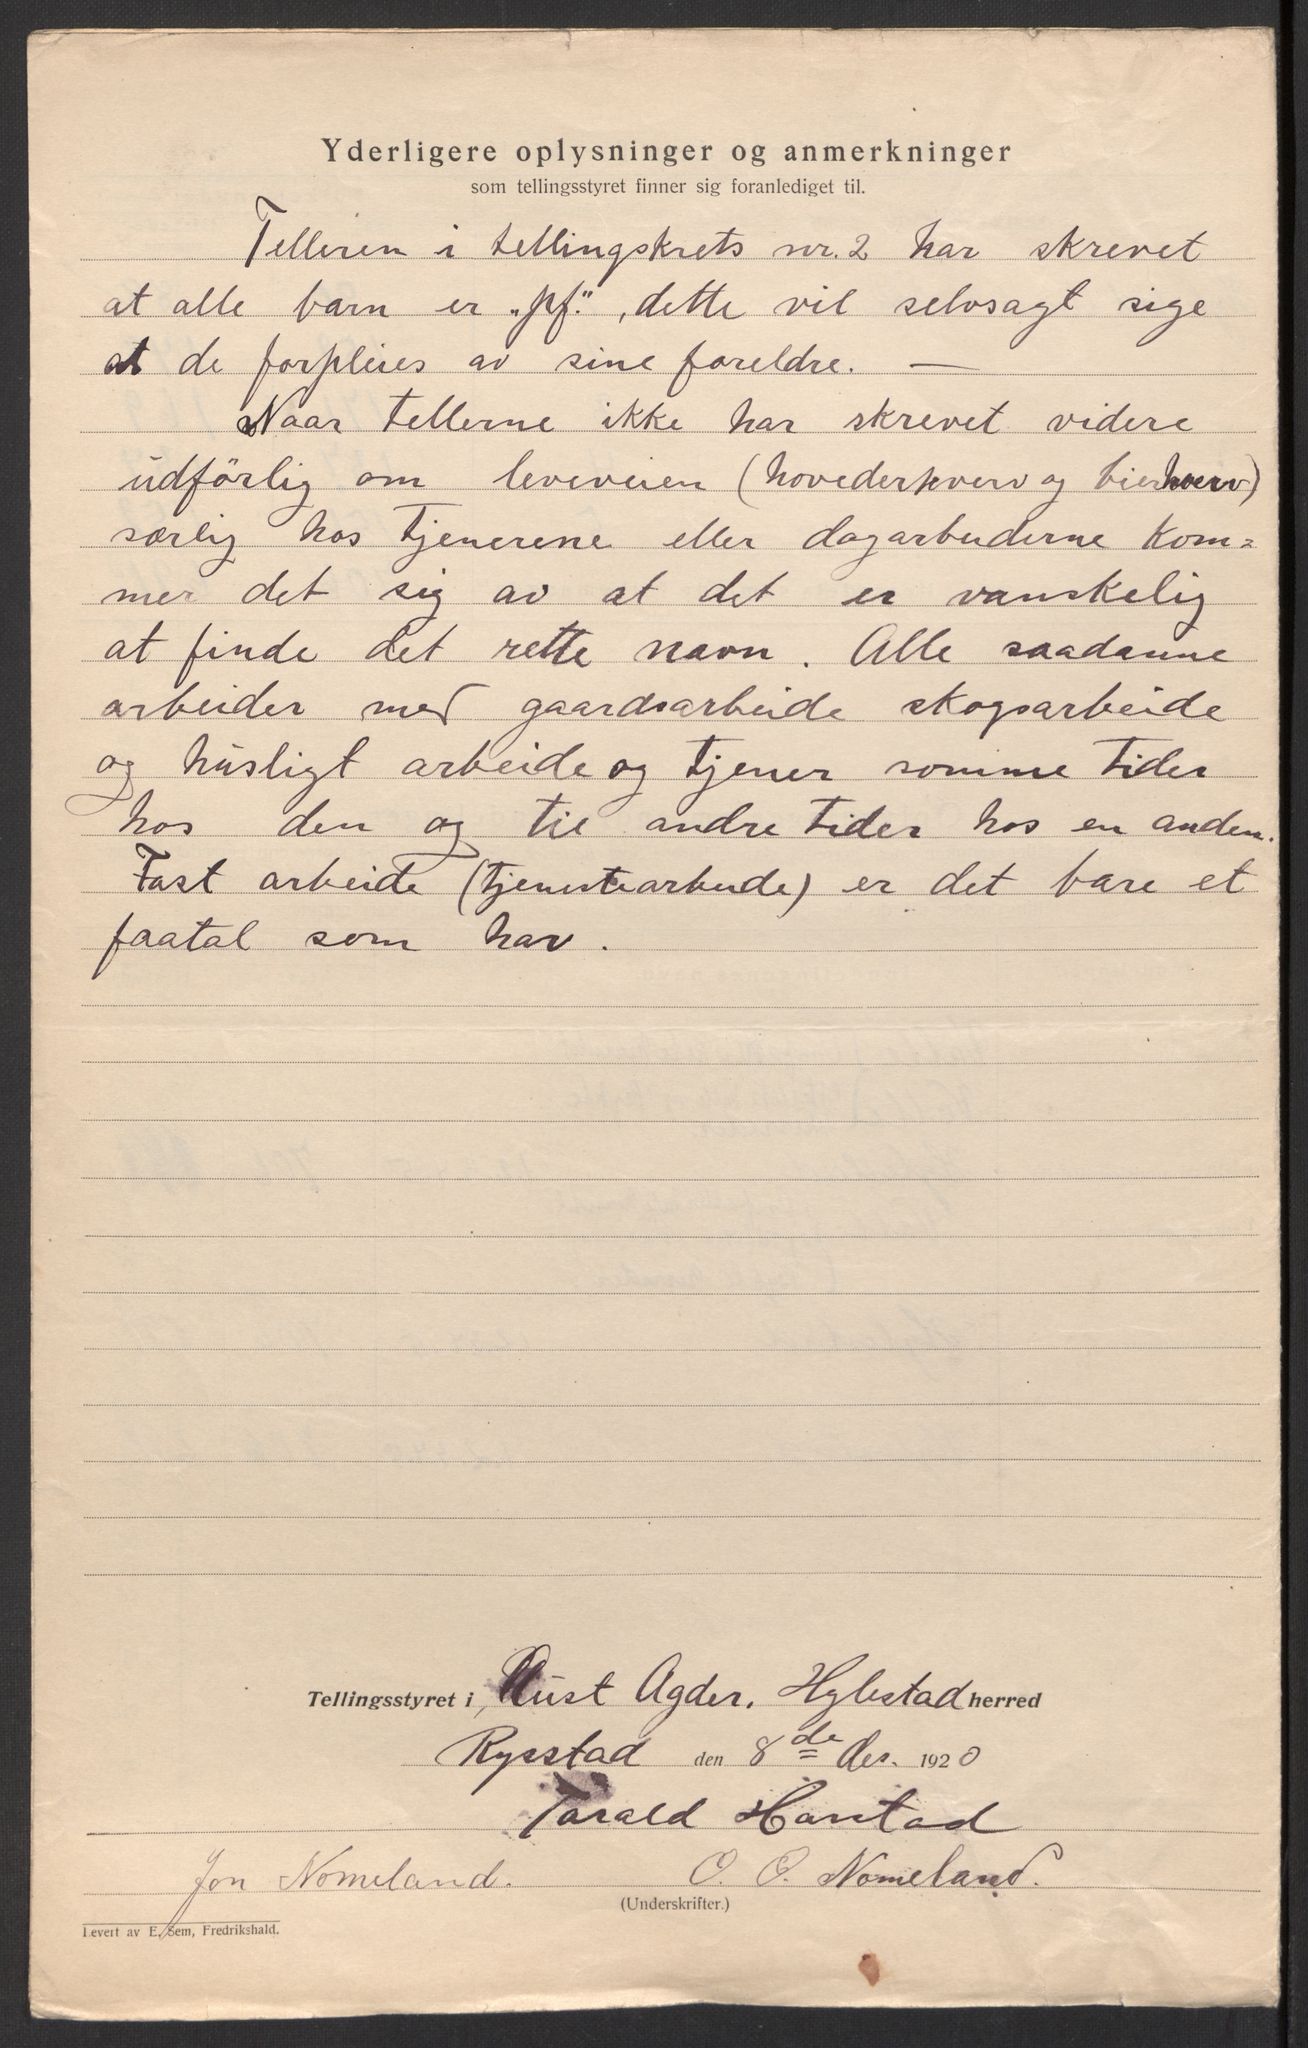 Yderligere oplysninger og anmerkninger
som tellingsstyret finner sig foranlediget til.
Telleren i tellingskrets nr. 2 har skrevet
at alle barn er „pf.“, dette vil selvsagt sige
at de forpleies av sine foreldre. —
Naar tellerne ikke har skrevet videre
udførlig om leveveien (hovederhverv og bierhverv)
særlig hos tjenerene eller dagarbeiderne kom=
mer det sig av at det er vanskelig
at finde det rette navn. Alle saadanne
arbeider med gaardsarbeide skogsarbeide
og husligt arbeide og tjener somme tider
hos den og til andre tider hos en anden.
Fast arbeide (tjenestearbeide) er det bare et
faatal som har.
Tellingsstyret i, Aust Agder, Hylestad herred
Rysstad den 8de Des. 1920
Tarald Harstad
Jon Nomeland. O. O. Nomeland.
(Underskrifter.)
Levert av E. Sem, Fredrikshald.